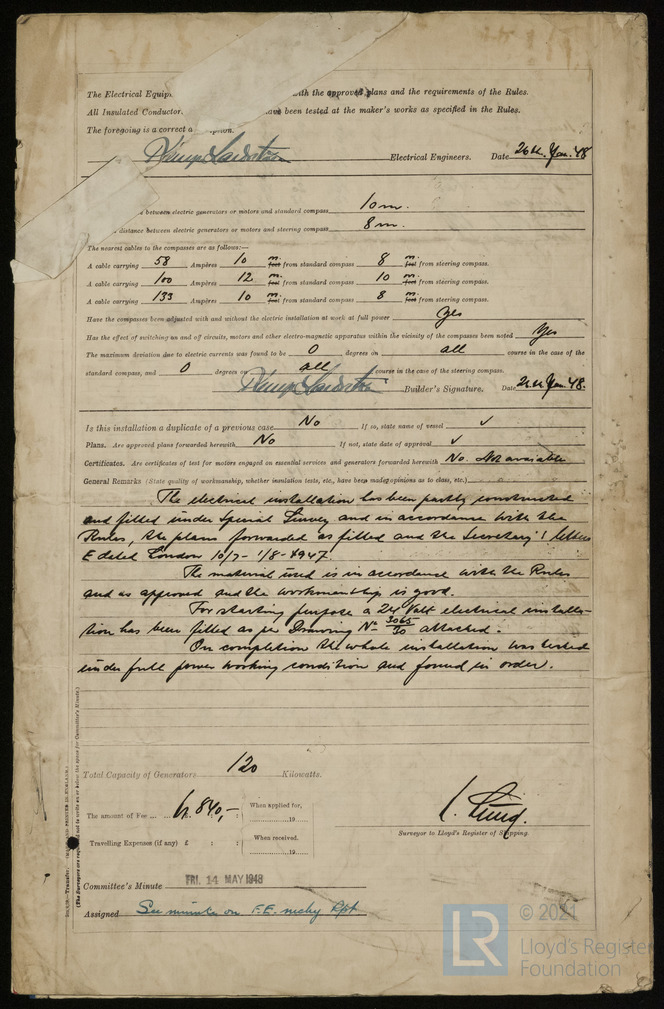 The Electrical Equip with the approved plans and the requirements of the Rules.
All Insulated Conductor have been tested at the maker's works as specified in the Rules.
The foregoing is a correct
Electrical Engineers. Date 26th. Jan. 48
between electric generators or motors and standard compass 10 m.
distance between electric generators or motors and steering compass 8 m.
The nearest cables to the compasses are as follows:—
A cable carrying 58 Ampères 10 m. feet from standard compass 8 m. feet from steering compass.
A cable carrying 100 Ampères 12 m. feet from standard compass 10 m. feet from steering compass.
A cable carrying 133 Ampères 10 m. feet from standard compass 8 m. feet from steering compass.
Have the compasses been adjusted with and without the electric installation at work at full power Yes
Has the effect of switching on and off circuits, motors and other electro-magnetic apparatus within the vicinity of the compasses been noted Yes
The maximum deviation due to electric currents was found to be 0 degrees on all course in the case of the
standard compass, and 0 degrees on all course in the case of the steering compass.
Builder's Signature. Date Jan. 48.
Is this installation a duplicate of a previous case No If so, state name of vessel ✓
Plans. Are approved plans forwarded herewith No If not, state date of approval ✓
Certificates. Are certificates of test for motors engaged on essential services and generators forwarded herewith No. Not available
General Remarks (State quality of workmanship, whether insulation tests, etc., have been made, opinions as to class, etc.)
The electrical installation has been partly constructed
and fitted under Special Survey and in accordance with the
Rules, the plans forwarded as fitted and the Secretary's letters
E dated London 10/7- 1/8-1947.
The material used is in accordance with the Rules
and as approved and the workmanship is good.
For starting purpose a 24 Volt electrical installa-
tion has been fitted as per Drawing No 3065/30 attached.
On completion the whole installation was tested
under full power working condition and found in order.
Total Capacity of Generators 120 Kilowatts.
The amount of Fee ... 840,- When applied for,
19
Travelling Expenses (if any) £ : : When received.
19
Surveyor to Lloyd's Register of Shipping.
Committee's Minute FRI. 14 MAY 1948
Assigned See minute on F.E. mchy Rpt
LR © 2021
Lloyd's Register
Foundation